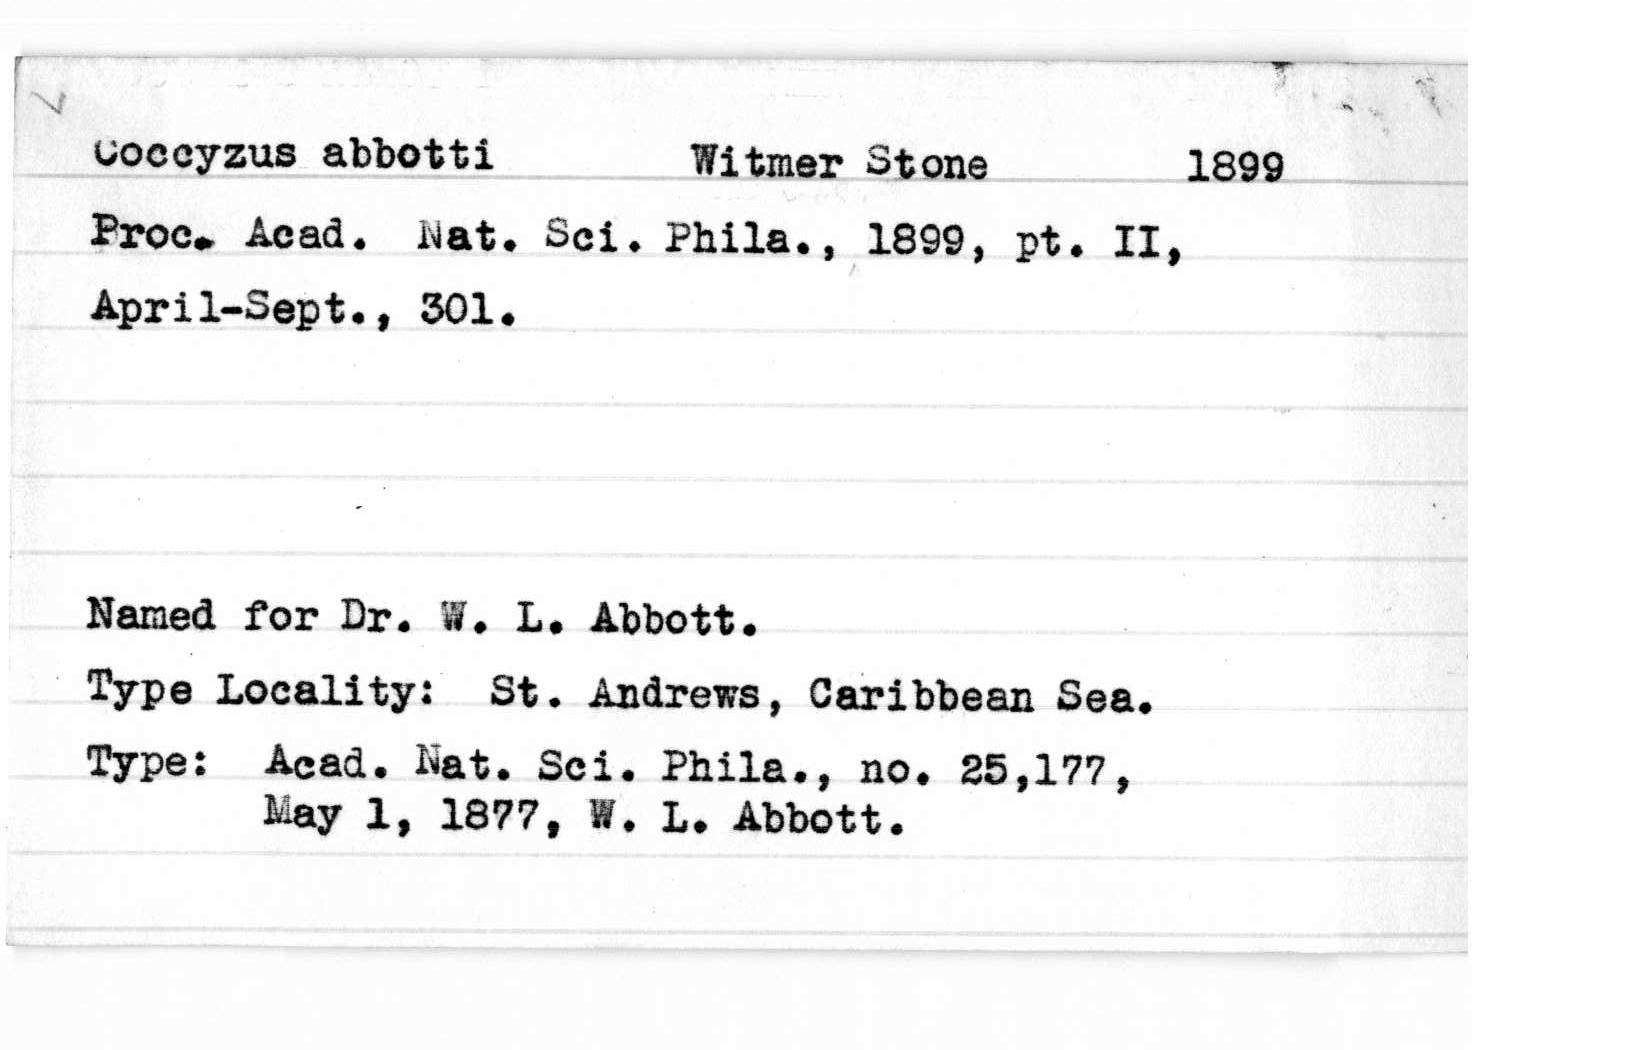 Coccyzus abbotti Witmer Stone 1899
Proc. Acad. Nat. Sci. Phila., 1899, pt. II,
April-Sept., 301.
Named for Dr. W. L. Abbott.
Type Locality: St. Andrews, Caribbean Sea.
Type: Acad. Nat. Sci. Phila., no. 25,177,
May 1, 1877, W. L. Abbott.